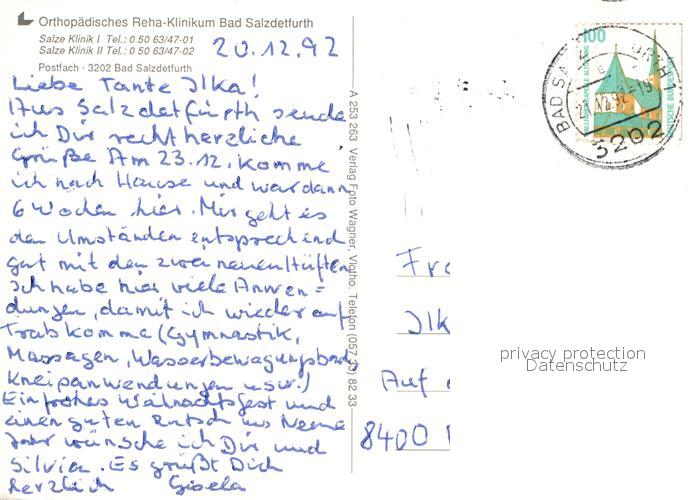 Orthopädisches Reha-Klinikum Bad Salzdetfurth
Salze Klinik I Tel.: 0 50 63/47-01
Salze Klinik II Tel.: 0 50 63/47-02
Postfach · 3202 Bad Salzdetfurth
20.12.92
Liebe Tante Ilka!
Aus Salzdetfurth sende
ich Dir recht herzliche
Grüße Am 23.12. komme
ich nach Hause und war dann
6 Wochen hier. Mir geht es
den Umständen entsprechend
gut mit den zwei neuen Hüften
Ich habe hier viele Anwen=
dungen, damit ich wieder auf
Trab komme (Gymnastik,
Massagen, Wasserbewegungsbad,
Kneipanwendungen usw.)
Ein frohes Weihnachtsfest und
einen guten Rutsch ins Neue
Jahr wünsche ich Dir und
Silvia. Es grüßt Dich
herzlich Gisela
A 253 263 Verlag Foto Wagner, Vlotho, Telefon (057 33) 82 33
100
DEUTSCHE BUNDESPOST
BAD SALZ
21.12.92-19
3202
Fr
Ilk
Auf
8400
privacy protection
Datenschutz